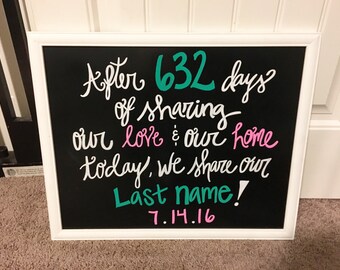 After 632 days
of sharing
our love & our home
today, we share our
Last name!
7.14.16